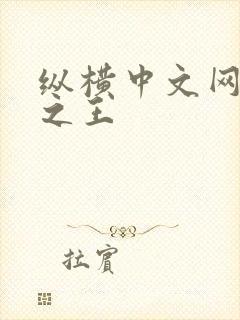 纵横中文网
之王
拉宾